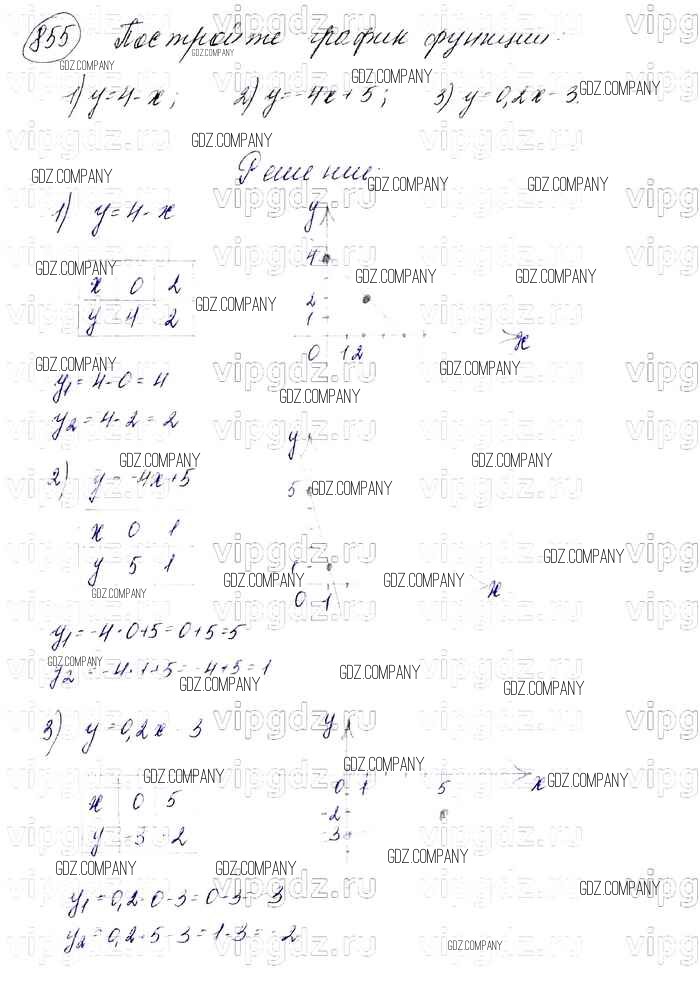 855 Постройте график функции:
1) y=4-x; 2) y=-4x+5; 3) y=0,2x-3.
Решение:
1) y=4-x
x 0 2
y 4 2
y
4
2
1
0 1 2 x
y₁=4-0=4
y₂=4-2=2
2) y=-4x+5
x 0 1
y 5 1
y
5
1
0 1 x
y₁=-4·0+5=0+5=5
y₂=-4·1+5=-4+5=1
3) y=0,2x-3
x 0 5
y -3 -2
y
0 1 5 x
-2
-3
y₁=0,2·0-3=0-3=-3
y₂=0,2·5-3=1-3=-2
GDZ.COMPANY
vipgdz.ru